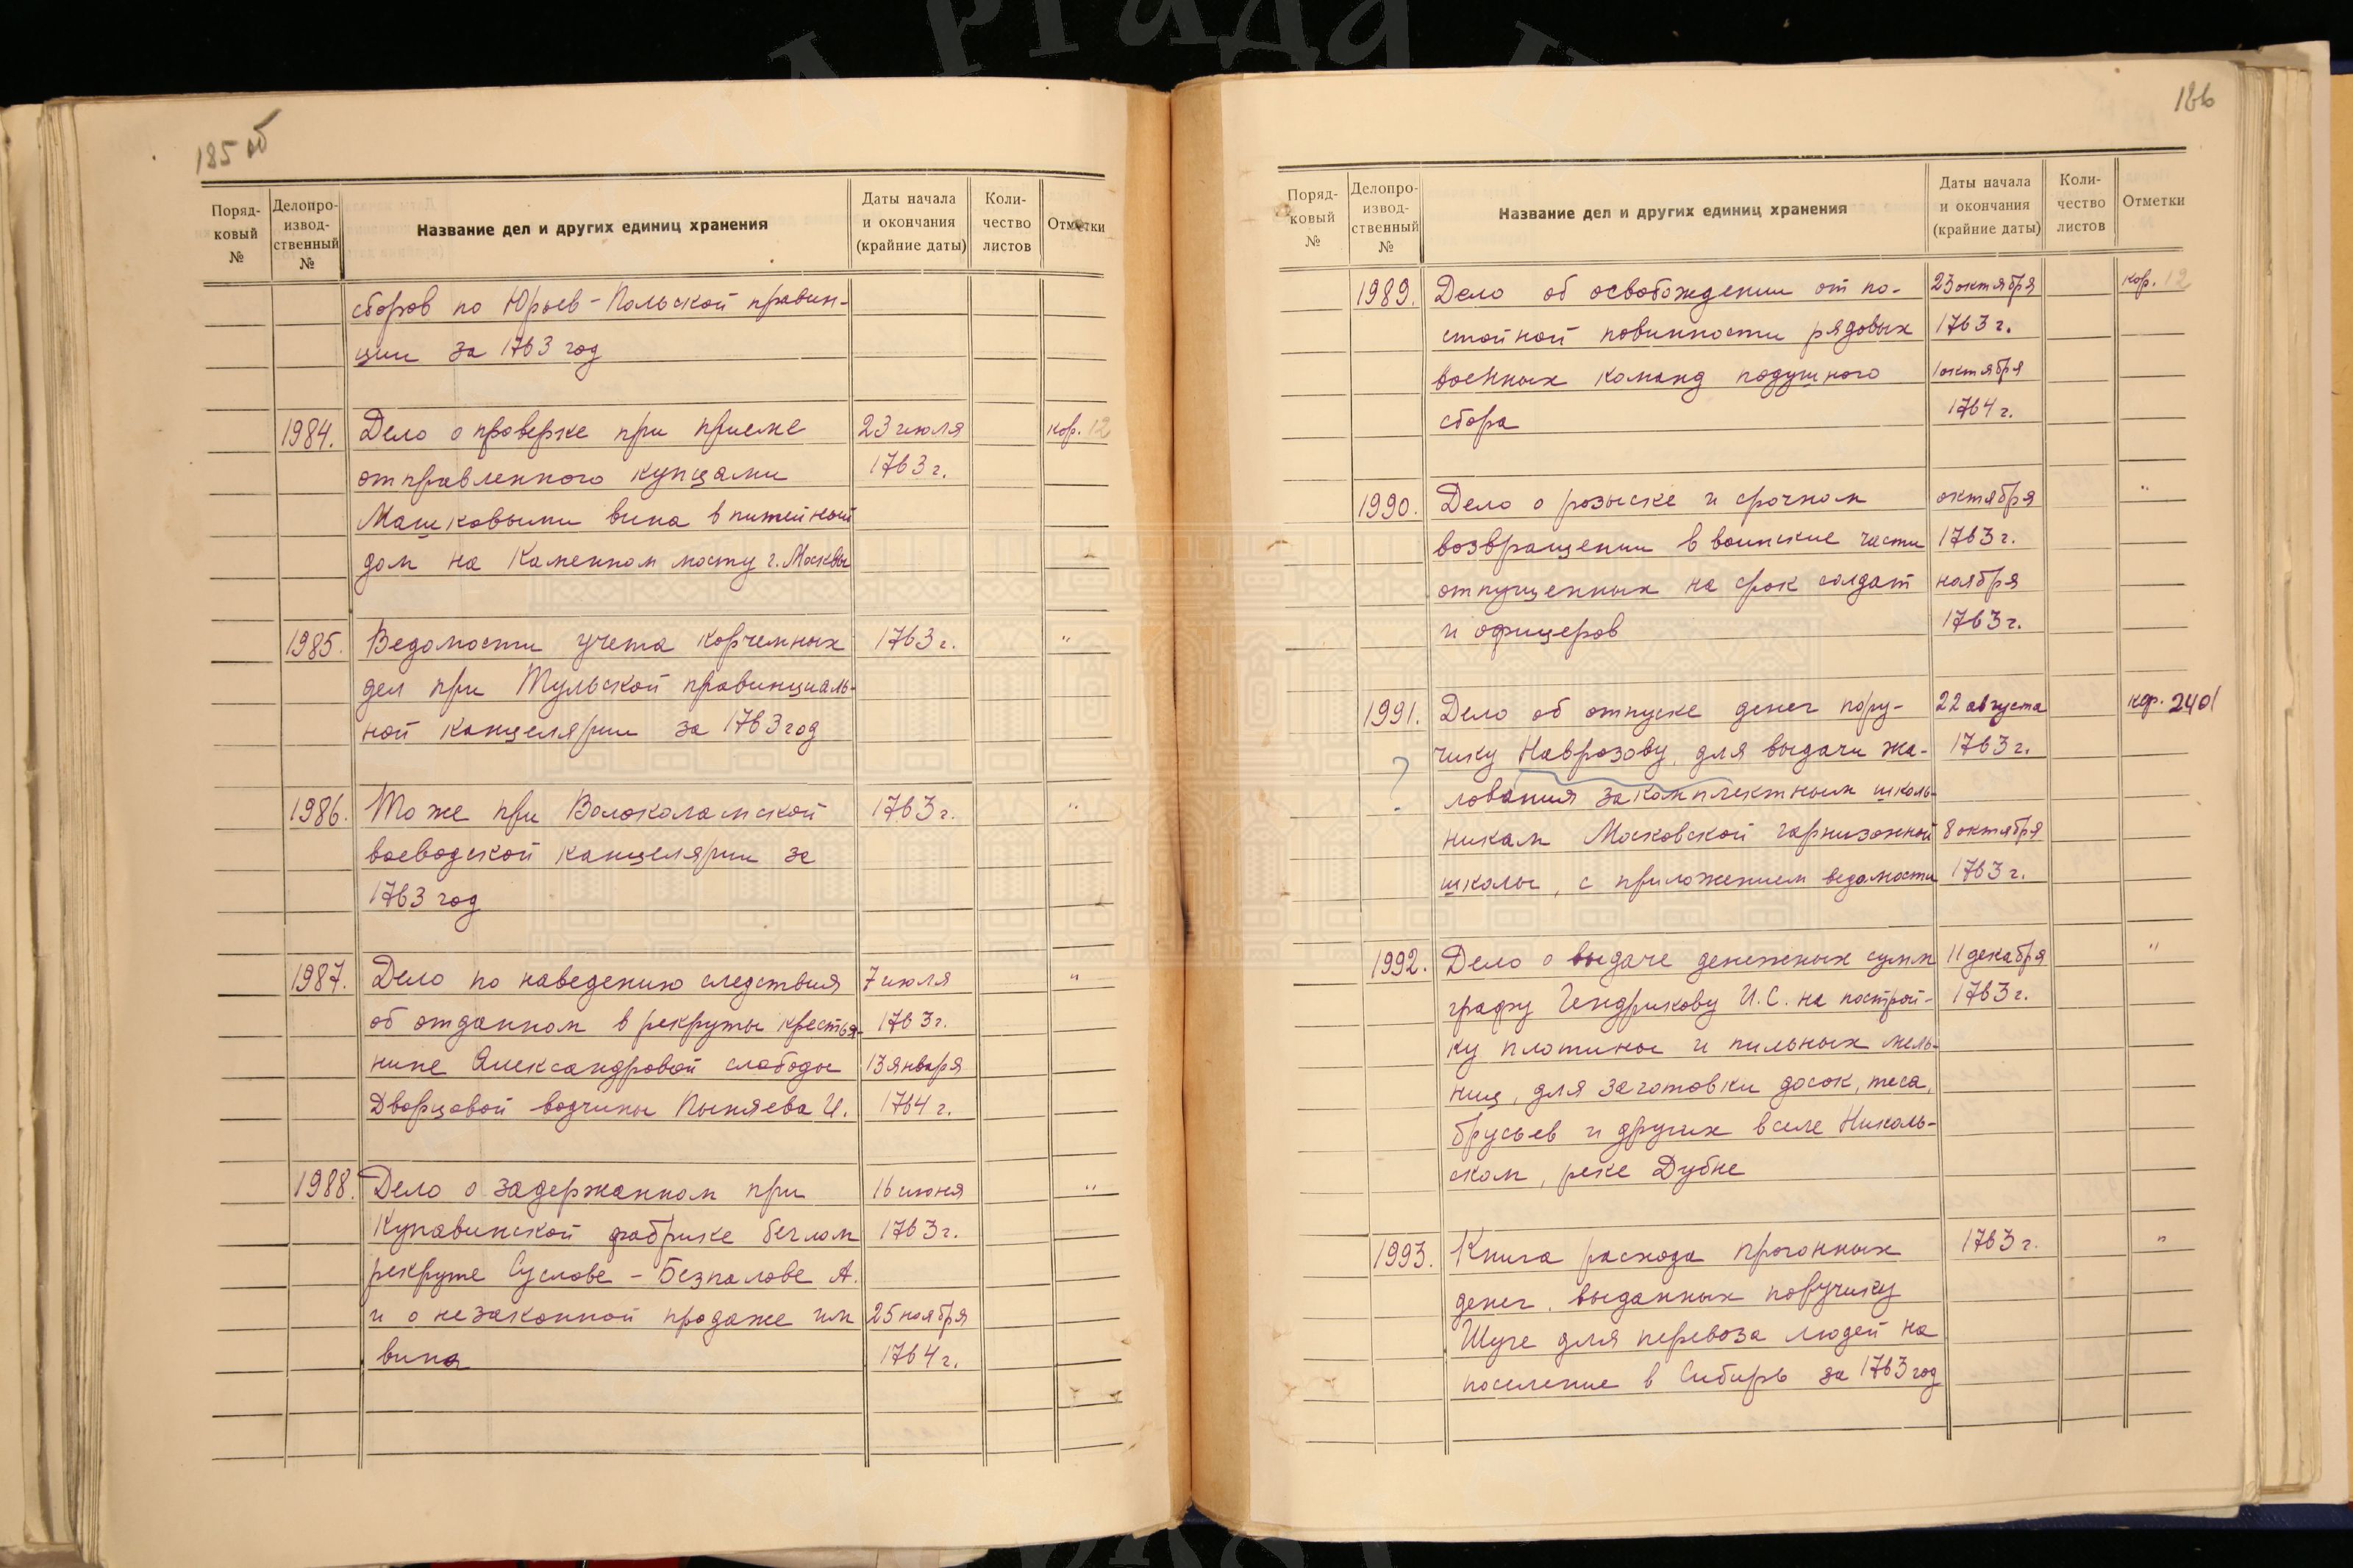 185 об
Поряд-
ковый
№
Делопро-
извод-
ственный
№
Название дел и других единиц хранения
Даты начала
и окончания
(крайние даты)
Коли-
чество
листов
Отметки
сборов по Юрьев-Польской провин-
ции за 1763 год
1984. Дело о проверке при приеме 23 июля кор. 12
отправленного купцами 1763 г.
Машковыми вина в питейный
дом на Каменном мосту г. Москвы
1985. Ведомости учета корчемных 1763 г. "
дел при Тульской провинциаль-
ной канцелярии за 1763 год
1986. То же при Волоколамской 1763 г. "
воеводской канцелярии за
1763 год
1987. Дело по наведению следствия 7 июля "
об отданном в рекруты крестья- 1763 г.
нине Александровой слободы 13 января
Дворцовой вотчины Пыняева И. 1764 г.
1988. Дело о задержанном при 16 июня "
Купавинской фабрике беглом 1763 г.
рекруте Суслове - Безпалове А.
и о незаконной продаже им 25 ноября
вина 1764 г.
186
Поряд-
ковый
№
Делопро-
извод-
ственный
№
Название дел и других единиц хранения
Даты начала
и окончания
(крайние даты)
Коли-
чество
листов
Отметки
1989. Дело об освобождении от по- 23 октября кор. 12
стойной повинности рядовых 1763 г.
военных команд подушного 1 октября
сбора 1764 г.
1990. Дело о розыске и срочном октября "
возвращении в воинские части 1763 г.
отпущенных на срок солдат ноября
и офицеров 1763 г.
1991. Дело об отпуске денег пору- 22 августа кор. 240/
чику Наврозову, для выдачи жа- 1763 г.
? лования закомплектным школь-
никам Московской гарнизонной 8 октября
школы, с приложением ведомости 1763 г.
1992. Дело о выдаче денежных сумм 11 декабря "
графу Гендрикову И.С. на построй- 1763 г.
ку плотины и пильных мель-
ниц, для заготовки досок, теса,
брусьев и других в селе Николь-
ском, реке Дубне
1993. Книга расхода прогонных 1763 г. "
денег, выданных поручику
Шуге для перевоза людей на
поселение в Сибирь за 1763 год